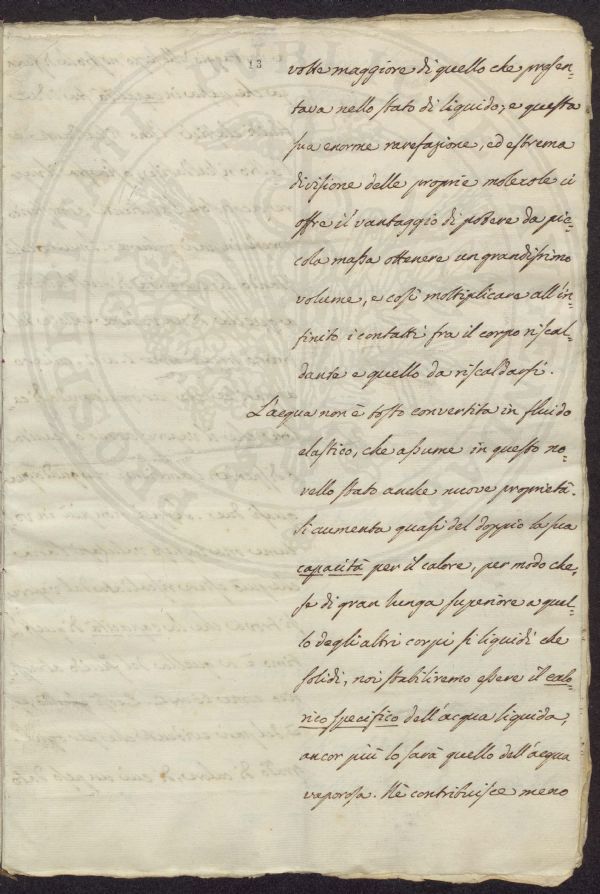 13
volte maggiore di quello che presen-
tava nello stato di liquido; e questa
sua enorme rarefazione, ed estrema
divisione delle proprie molecole ci
offre il vantaggio di potere da pic-
cola massa ottenere un grandissimo
volume, e così moltiplicare all'in-
finito i contatti fra il corpo riscal-
dante e quello da riscaldarsi.
L'acqua non è tosto convertita in fluido
elastico, che assume in questo no-
vello stato anche nuove proprietà.
Si aumenta quasi del doppio la sua
capacità per il calore, per modo che,
se di gran lunga superiore a quel-
lo degli altri corpi sì liquidi che
solidi, noi stabiliremo essere il calo-
rico specifico dell'acqua liquida,
ancor più lo sarà quello dell'acqua
vaporosa. Nè contribuisce meno